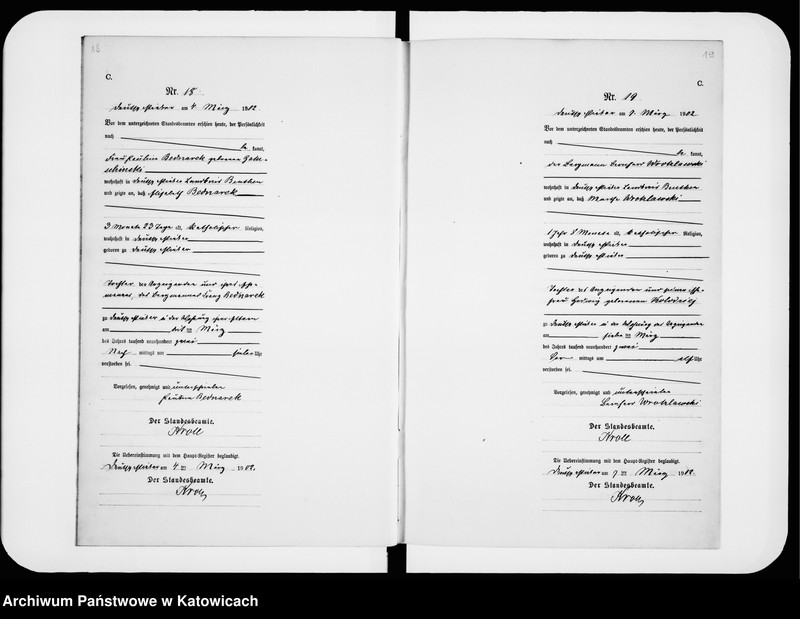 18
C.
Nr. 18
am 4 März 1902
Vor dem unterzeichneten Standesbeamten erschien heute, der Persönlichkeit
nach
kannt,
Frau Pauline Bednarek geborene
wohnhaft in Landkreis Beuthen
und zeigte an, daß Elisabeth Bednarek
3 Monate 23 Tage alt, katholischer Religion,
wohnhaft in
geboren zu
Tochter der Anzeigenden und ihres Ehe-
mannes, des Bergmannes Bednarek
zu in der Wohnung ihrer Eltern
am März
des Jahres tausend neunhundert zwei
Nach mittags um Uhr
verstorben sei.
Vorgelesen, genehmigt und unterschrieben
Pauline Bednarek
Der Standesbeamte.
Kroll
Die Uebereinstimmung mit dem Haupt-Register beglaubigt.
am 4 ten März 1902.
Der Standesbeamte.
Kroll
19
C.
Nr. 19
am 7. März 1902
Vor dem unterzeichneten Standesbeamten erschien heute, der Persönlichkeit
nach
kannt,
der Bergmann Wrotzlawski
wohnhaft in Landkreis Beuthen
und zeigte an, daß Martha Wrotzlawski
1 Jahr Monate alt, katholischer Religion,
wohnhaft in
geboren zu
Tochter des Anzeigenden und seiner Ehe-
frau Hedwig geborenen
zu in der Wohnung des Anzeigenden
am sieben ten März
des Jahres tausend neunhundert zwei
Vor mittags um Uhr
verstorben sei.
Vorgelesen, genehmigt und unterschrieben
Wrotzlawski
Der Standesbeamte.
Kroll
Die Uebereinstimmung mit dem Haupt-Register beglaubigt.
am 7 ten März 1902.
Der Standesbeamte.
Kroll
Archiwum Państwowe w Katowicach